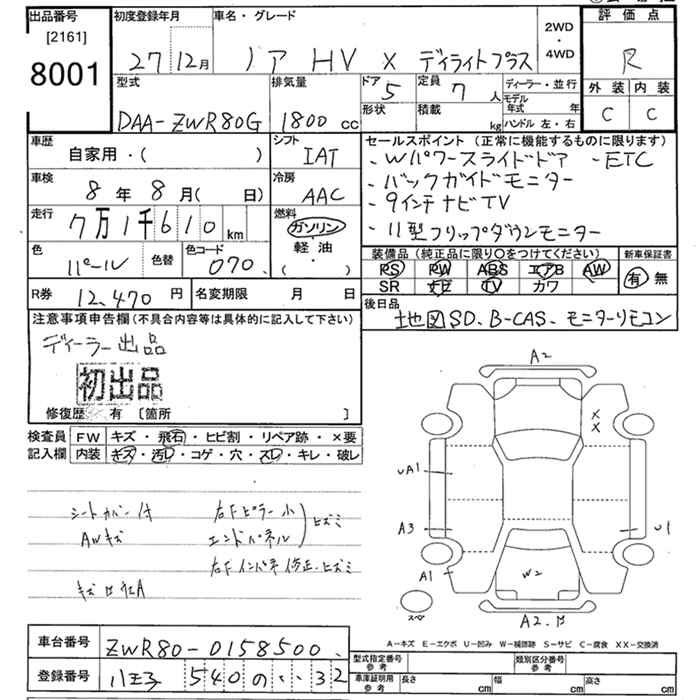 出品番号 初度登録年月 車名・グレード 2WD ・ 4WD 評価点
[2161]
8001 27 12月 ノア HV X ディライトプラス R
型式 排気量 ドア 5 定員 7 人 ディーラー・並行 外装 内装
DAA-ZWR80G 1800 cc 形状 積載 kg モデル年式 年 C C
ハンドル 左・右
車歴 シフト セールスポイント (正常に機能するものに限ります)
自家用・( ) IAT ・Wパワースライドドア ・ETC
車検 冷房 ・バックガイドモニター
8年 8月( 日) AAC ・9インチナビTV
走行 7万1千610 km 燃料 ガソリン ・11型フリップダウンモニター
軽油
・( )
色 パール 色替 色コード 070 装備品 (純正品に限り○をつけてください) 新車保証書
PS PW ABS エアB AW 有 無
SR ナビ TV カワ
R券 12,470 円 名変期限 月 日 後日品
地図SD、B-CAS、モニターリモコン
注意事項申告欄 (不具合内容等は具体的に記入して下さい)
ディーラー出品
初出品
修復歴 有 〔箇所 〕
検査員 FW キズ・飛石・ヒビ割・リペア跡・×要
記入欄 内装 キズ・汚レ・コゲ・穴・スレ・キレ・破レ
シートカバー付 右下ピラー小
AWキズ エンドパネル ヒズミ
右下インパネ修正、ヒズミ
A2
X
X
UA1
A3 U1
A1 W2
スペア A2.B
A-キズ E-エクボ U-凹み W-補修跡 S-サビ C-腐食 XX-交換済
車台番号 ZWR80-0158500
登録番号 八王子 540 の ・・32
型式指定番号 参考 類別区分番号 参考
車庫証明用 参考 長さ cm 幅 cm 高さ cm